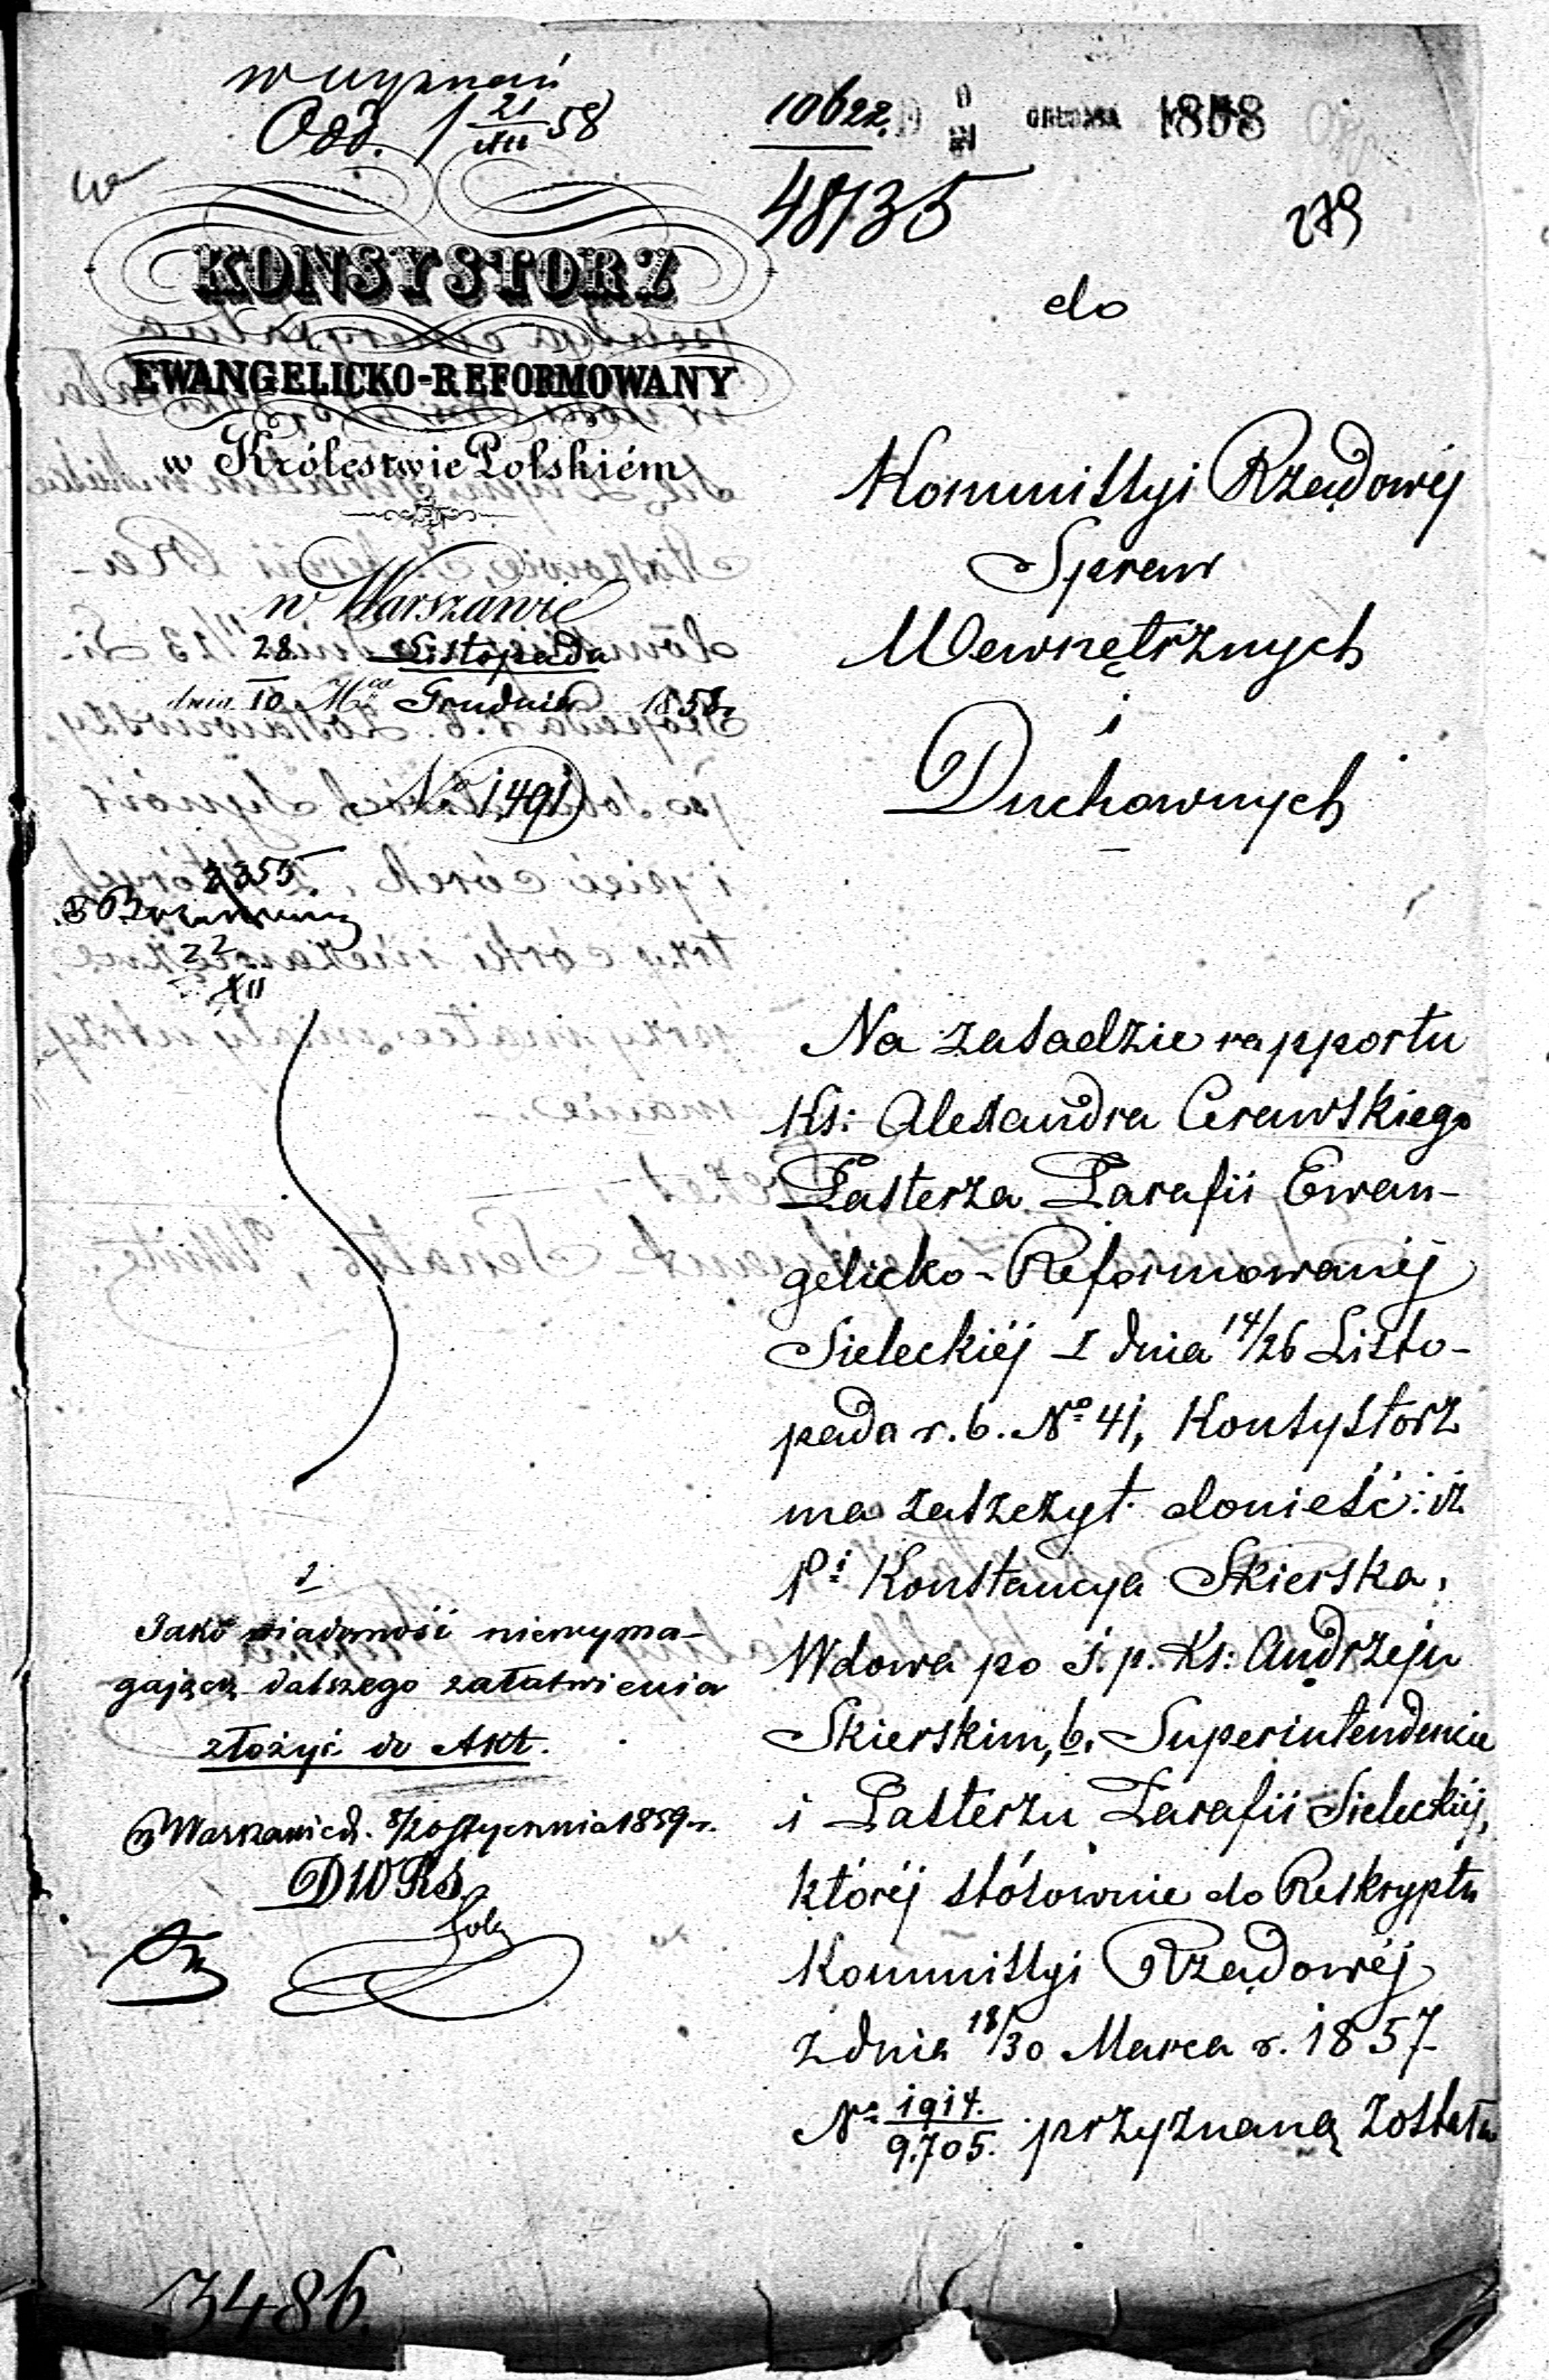 Odd. 1 21/XII 58
10622.
GRUDNIA 1858
48135
279
KONSYSTORZ
EWANGELICKO-REFORMOWANY
w Królestwie Polskiém
w Warszawie
28 Listopada
dnia 10 Mca Grudnia 1858.
No 1491
2255
22
XII
do
Kommissyi Rządowéj
Spraw
Wewnętrznych
i
Duchownych
Na zasadzie rapportu
Ks: Alexandra Cerawskiego
Pasterza Parafii Ewan-
gelicko-Reformowanéj
Sieleckiéj z dnia 14/26 Listo-
pada r. b. No 41, Konsystorz
ma zaszczyt donieść: iż
Pi Konstancya Skierska,
Wdowa po ś. p. Ks: Andrzeju
Skierskim, b. Superintendencie
i Pasterzu Parafii Sieleckiéj,
któréj stósownie do Reskryptu
Kommissyi Rządowéj
z dnia 18/30 Marca r. 1857
No 1914./9.705. przyznaną została
1
Jako wiadomość niewyma-
gającą dalszego załatwienia
złożyć do Akt.
w Warszawie d. 8/20 stycznia 1859 r.
DWRS
3486.